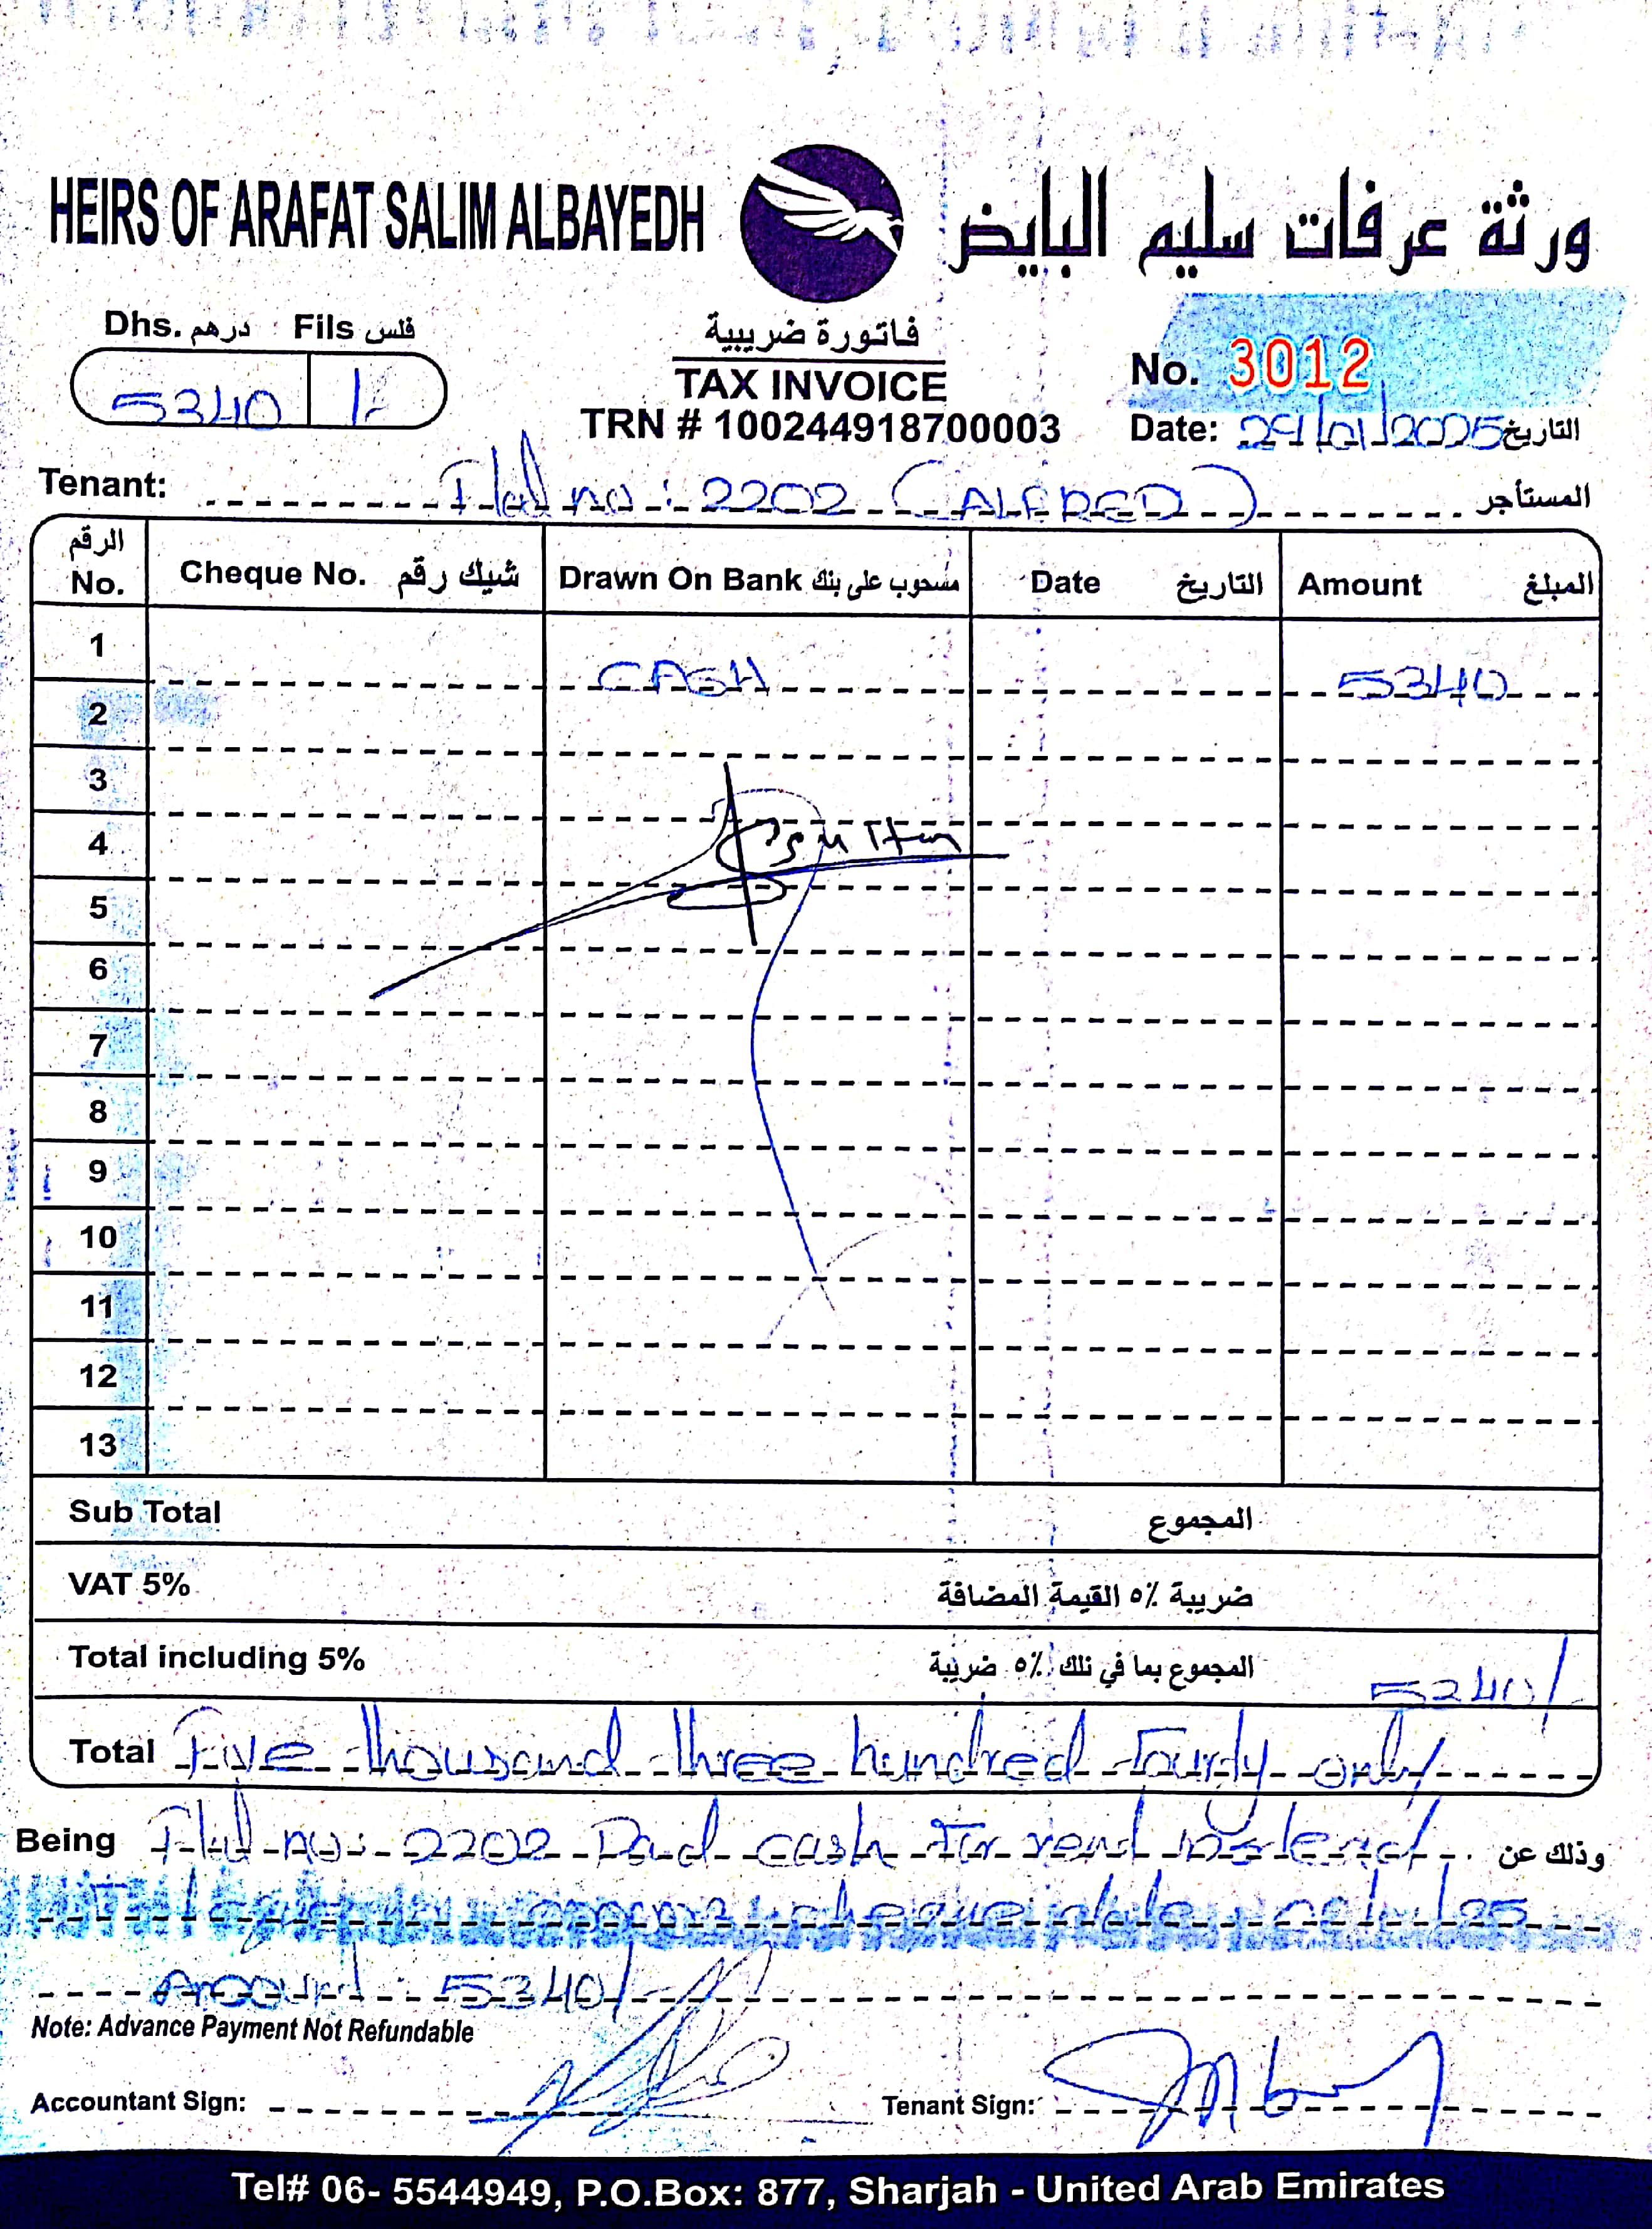 HEIRS OF ARAFAT SALIM ALBAYEDH
ورثة عرفات سليم البايض
Dhs. درهم Fils فلس
5340 /-
فاتورة ضريبية
TAX INVOICE
TRN # 100244918700003
No. 3012
Date: 29/01/2025 التاريخ
Tenant: Flat no : 2202 (ALFRED) المستأجر
الرقم No. Cheque No. شيك رقم Drawn On Bank مسحوب على بنك Date التاريخ Amount المبلغ
1 CASH 5340
2
3
4
5
6
7
8
9
10
11
12
13
Sub Total المجموع
VAT 5% ضريبة ٥٪ القيمة المضافة
Total including 5% المجموع بما في ذلك ٥٪ ضريبة 5340/-
Total Five thousand three hundred fourty only
Being Flat no: 2202 Paid cash for rent وذلك عن
cheque date
Amount : 5340/-
Note: Advance Payment Not Refundable
Accountant Sign:
Tenant Sign:
Tel# 06- 5544949, P.O.Box: 877, Sharjah - United Arab Emirates